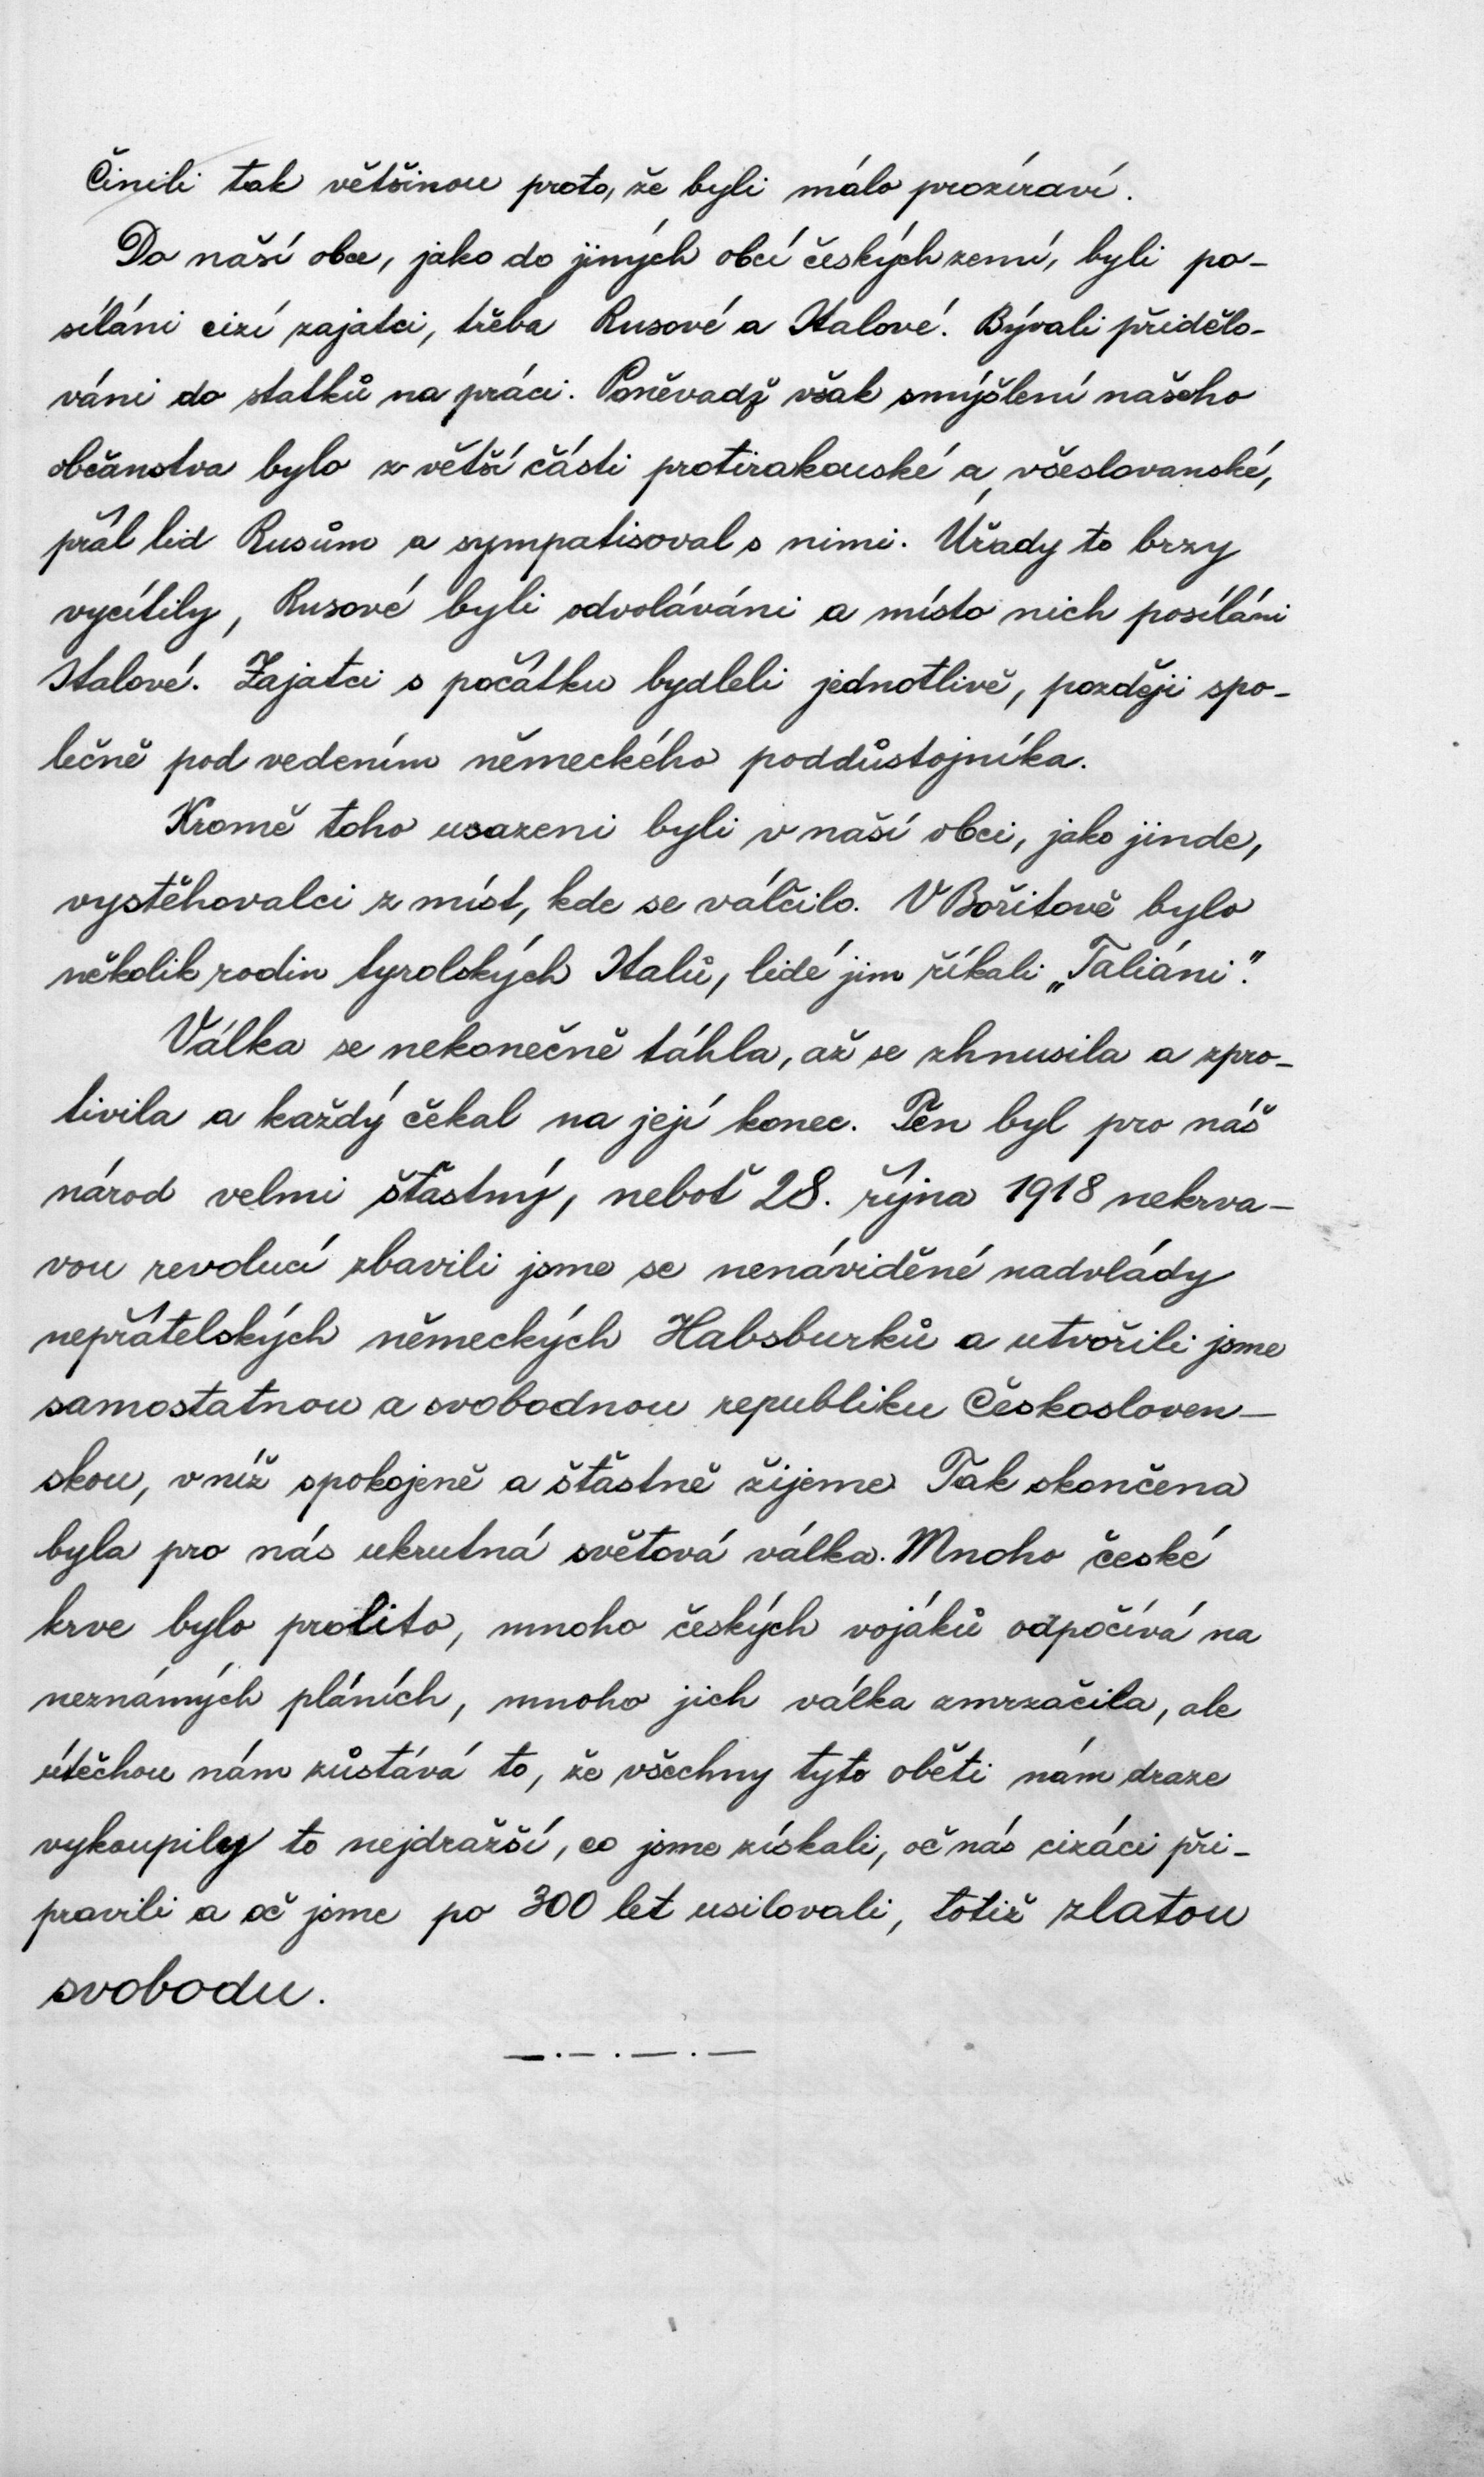 Činili tak většinou proto, že byli málo prozíraví.
Do naší obce, jako do jiných obcí českých zemí, byli po-
síláni cizí zajatci, třeba Rusové a Italové. Bývali přidělo-
váni do statků na práci. Poněvadž však smýšlení našeho
občanstva bylo z větší části protirakouské a všeslovanské,
přál lid Rusům a sympatisoval s nimi. Úřady to brzy
vycítily, Rusové byli odvoláváni a místo nich posíláni
Italové. Zajatci s počátku bydleli jednotlivě, později spo-
lečně pod vedením německého poddůstojníka.
Kromě toho usazeni byli v naší obci, jako jinde,
vystěhovalci z míst, kde se válčilo. V Bořitově bylo
několik rodin tyrolských Italů, lidé jim říkali „Taliáni".
Válka se nekonečně táhla, až se zhnusila a zpro-
tivila a každý čekal na její konec. Ten byl pro náš
národ velmi šťastný, neboť 28. října 1918 nekrva-
vou revolucí zbavili jsme se nenáviděné nadvlády
nepřátelských německých Habsburků a utvořili jsme
samostatnou a svobodnou republiku Českosloven-
skou, v níž spokojeně a šťastně žijeme. Tak skončena
byla pro nás ukrutná světová válka. Mnoho české
krve bylo prolito, mnoho českých vojáků odpočívá na
neznámých pláních, mnoho jich válka zmrzačila, ale
útěchou nám zůstává to, že všechny tyto oběti nám draze
vykoupily to nejdražší, co jsme získali, oč nás cizáci při-
pravili a oč jsme po 300 let usilovali, totiž zlatou
svobodu.